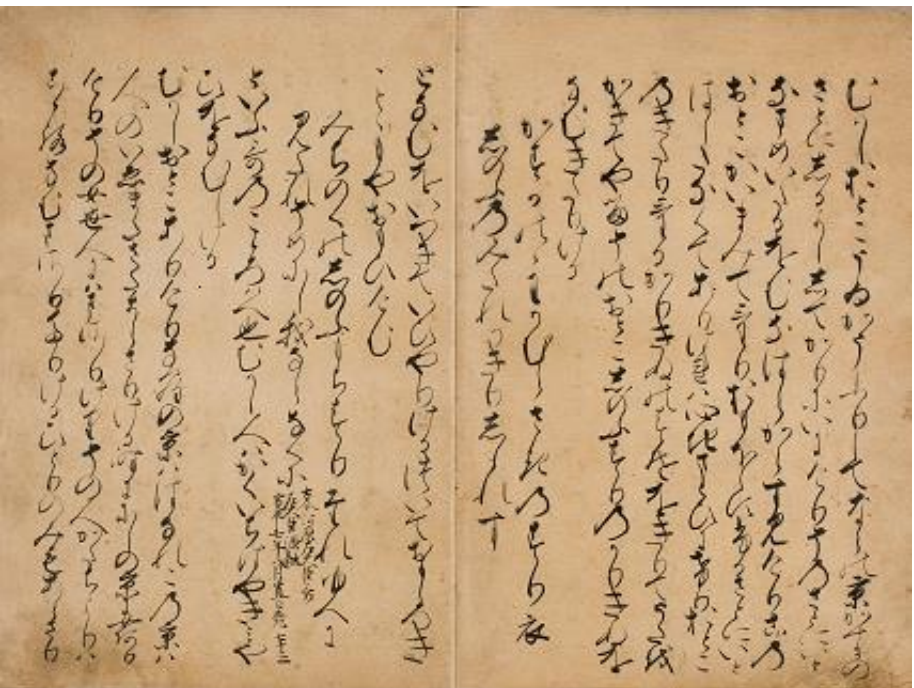 むかしおとこうゐかうふりしてならの京かすかの
さとにしるよししてかりにいにけりそのさとにいと
なまめいたるをむなはらからすみけりこの
おとこかいまみてけりおもほえすふるさとにいと
はしたなくてありけれは心地まとひにけりおとこ
のきたりけるかりきぬのすそをきりてうたを
かきてやるそのおとこしのふすりのかりきぬを
なむきたりける
かすかのゝわかむらさきのすり衣
しのふのみたれかきりしられす
となむをいつきていひやりけるついておもしろき
ことゝもやおもひけむ
みちのくのしのふもちすりたれゆへに
みたれそめにし我ならなくに
といふ哥のこゝろはへ也むかし人はかくいちはやきみや
ひをなむしける
むかしおとこありけりならの京ははなれこの京は
人のいゑまたさたまらさりける時ににしの京に女有けり
その女世人にはまされりけりその人かたちよりは
こゝろなむまさりたりけるひとりのみもあらさり